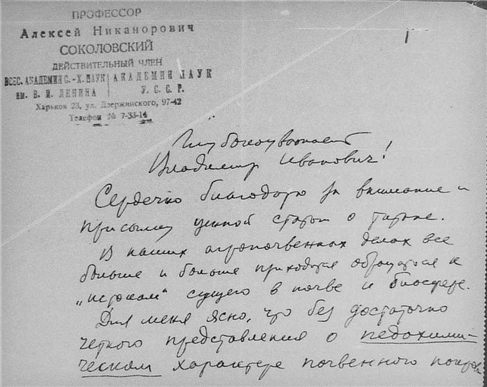 ПРОФЕССОР
Алексей Никанорович
СОКОЛОВСКИЙ
ДЕЙСТВИТЕЛЬНЫЙ ЧЛЕН
ВСЕС. АКАДЕМИИ С.-Х. НАУК | АКАДЕМИИ НАУК
ИМ. В. И. ЛЕНИНА | У. С. С. Р.
Харьков 23, ул. Дзержинского, 97-42
Телефон № 7-33-14
Глубокоуважаемый
Владимир Иванович!
Сердечно благодарю за внимание и
присылку ценной статьи о титане.
В наших агропочвенных делах все
больше и больше приходится обращаться к
"истокам" сущего в почве и биосфере.
Для меня ясно, что без достаточно
четкого представления о педохими-
ческом характере почвенного покров